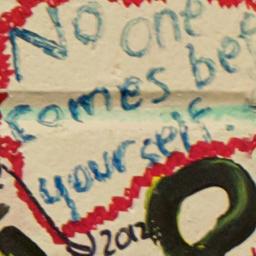 No one
comes be
yourself.
2012